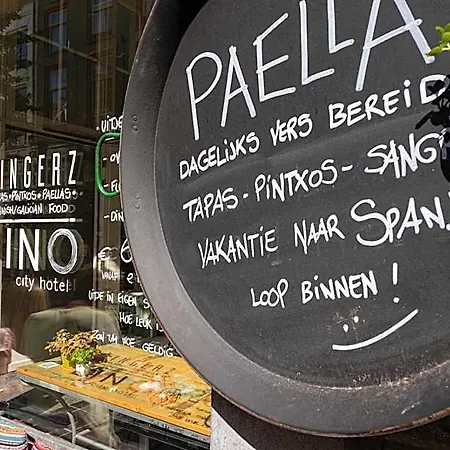 PAELLA
DAGELIJKS VERS BEREID
TAPAS - PINTXOS - SANG
VAKANTIE NAAR SPAN
LOOP BINNEN !
INGERZ
PINTXOS PAELLAS
FOOD
INO
city hotel
€ 6
UIT DE
IN EIGEN
HOE LEUK